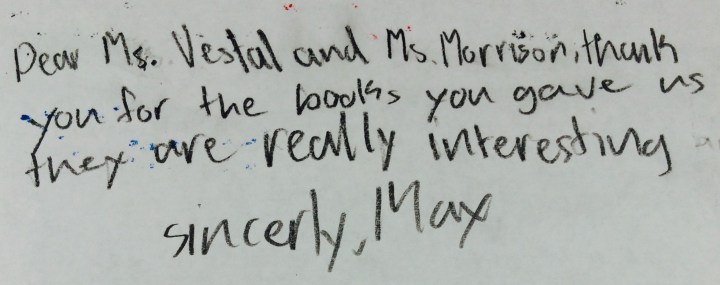 Dear Ms. Vestal and Ms. Morrison, thank
you for the books you gave us
they are really interesting
sincerly, Max